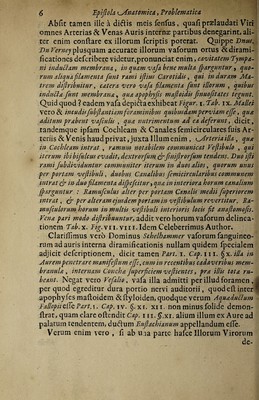 6 Epistola Anatomica, Problematica
Absit tamen ille à dictis meis sensus, quasi prælaudati Viri
omnes Arterias & Venas Auris internæ partibus denegarint, ali-
ter enim constare ex illorum scriptis poterat. Quippe Dnus.
Du Verney plusquam accurate illorum vasorum ortus & dirami-
ficationes describere videtur, pronunciat enim, cavitatem Tympa-
ni inductam membrana, in quam vasa bene multa spargantur, quo-
rum aliqua filamenta sunt rami istius Carotidis, qui in duram Ma-
trem distribuitur, cætera vero vasa filamenta sunt illorum, quibus
induta sunt membrana, quæ apophysis mastoidis sinuositates tegunt.
Quid quod? eadem vasa depicta exhibeat Figur. 1. Tab. IX. Mallei
vero & incudis substantiam foraminibus quibusdam perviam esse, quæ
aditum præbent vasculis, quæ nutrimentum ad ea deferunt, dicit,
tandemque ipsam Cochleam & Canales semicirculares suis Ar-
teriis & Venis haud privat, juxta Illum enim, Arteriolla, quæ
in Cochleam intrat, ramum notabilem communicat Vestibulo, qui
iterum ibi bisulcus evadit, dextrorsum & sinistrorsum tendens. Duo isti
rami subdividuntur communiter iterum in duos alios, quorum unus
per portam vestibuli, duobus Canalibus semicircularibus communem
intrat & in duo filamenta dispescitur, quæ in interiora horum canalium
sparguntur. Ramusculus alter per portam Canalis medii superiorem
intrat, & per alteram ejusdem portam in vestibulum revertitur. Ra-
musculorum horum in multis vestibuli interioris locis fit anastomosis.
Vena pari modo distribuuntur, addit vero horum vasorum delinea-
tionem Tab. X. Fig. VII. VIII. Idem Celeberrimus Author.
Clarissimus verò Dominus Schelhammer vasorum sanguineo-
rum ad auris interna diramificationis nullam quidem specialem
adjicit descriptionem, dicit tamen Part. 1. Cap. III. §. X. illa in
Aurem penetrare manifestum esse, cum in recentibus cadaveribus mem-
branula, internam Conchæ superficiem vestientes, præ illis tota ru-
beant. Negat vero Vesalio, vasa illa admitti per illud foramen,
per quod egreditur dura portio nervi auditorii, quod est inter
apophyses mastoidem & styloidem, quodque verum Aquæductum
Fallopii esse Part. 1. Cap. IV. §. XI. XII. non minus solide demon-
strat, quam clare ostendit Cap. III. §. XI. alium illum ex Aure ad
palatum tendentem, ductum Eustachianum appellandum esse.
Verum enim vero, si ab una parte hasce Illorum Virorum
de-